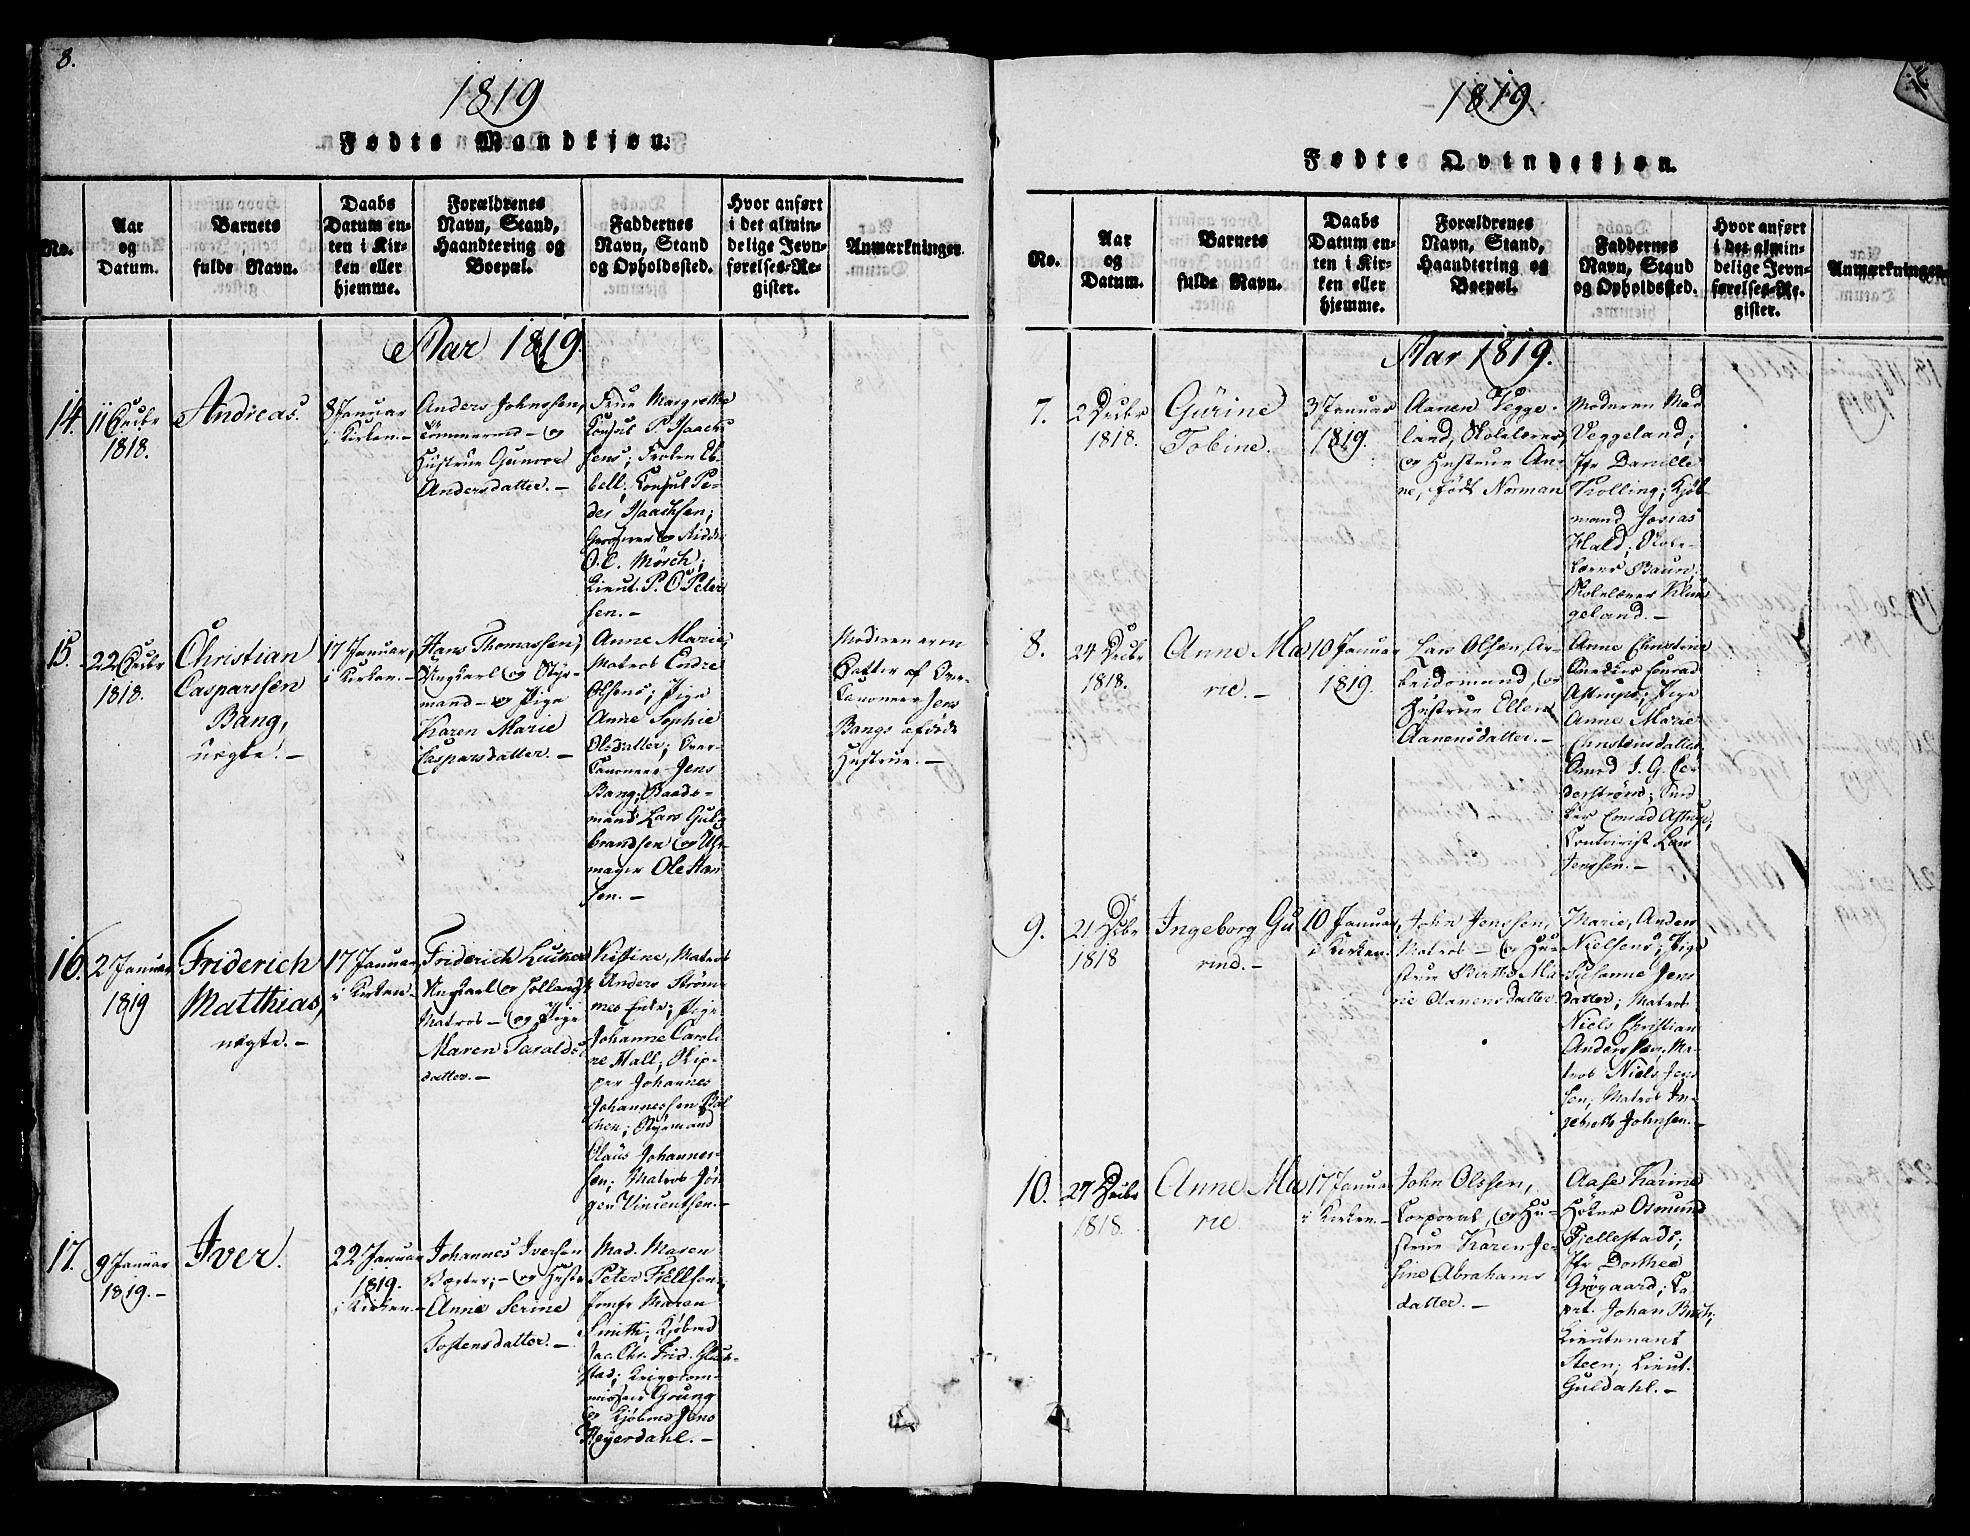 8.
1819
Fødte Mandkjøn.
No.
Aar
og
Datum.
Barnets
fulde Navn.
Daabs
Datum en-
ten i Kir-
ken eller
hjemme.
Forældrenes
Navn, Stand,
Haandtering og
Boepæl.
Faddernes
Navn, Stand
og Opholdssted.
Hvor anført
i det almin-
delige Jevn-
førelses-Re-
gister.
Anmærkninger.
Aar 1819.
14.
11 Decbr
1818.
Andreas.
8 Januar
i Kirken.-
Anders Johnssen,
Tømmermd - og
Hustrue Gunvor
Andersdatter. -
Frue Margrethe
Consul P. Isaach-
sens; Frøken Eb-
bell; Consul Pe-
der Isaachsen;
og Ridder
O. C. Mörch;
Lieut. P. C. Peter-
sen. -
15.
22 Decbr
1818.
Christian
Casparssen
Bang,
uægte. -
17 Januar,
i Kirken. -
Hans Thomassen,
Ungkarl og Styr-
mand - og Pige
Karen Marie
Caspersdatter. -
Anne Marie,
Matros Endre
Olsens; Pige
Anne Sophie
Olsdatter; Over-
Canoneer Jens
Bang; Baads-
mand Lars Gul-
brandsen og Uhr-
mager Ole Han-
sen. -
Moderen er en
Datter af Over-
Canoneer Jens
Bangs afdøde
Hustrue. -
16.
2 Januar
1819
Friderich
Matthias,
uægte. -
17 Januar,
i Kirken -
Friderich
Ungkarl og Hollandsk
Matros - og Pige
Maren Taralds-
datter. -
Kistine, Matros
Anders Ström-
mes Enke; Pige
Johanne Caroli-
ne Hall; Skip-
per Johannes
Johannessen
Styrmand
Claus Johannes-
sen; Matros Jör-
gen Vincentsen. -
17.
9 Januar
1819. -
Iver.
22 Januar
1819.
i Kirken. -
Johannes Iversen
Vægter; - og Hustr
Anne Serine
Tostensdatter. -
Mad. Maren
Peter Fiellsens;
Jomfr Maren
Smith; Kjöbmd
Jac. Chr. Frid. Glück-
stad; Krigscom-
missair Grüng
og Kjöbmd Jens
Heyerdahl. -
1819.
Fødte Qvindekjøn.
No.
Aar
og
Datum.
Barnets
fulde Navn.
Daabs
Datum en-
ten i Kir-
ken eller
hjemme.
Forældrenes
Navn, Stand,
Haandtering og
Boepæl.
Faddernes
Navn, Stand
og Opholdssted.
Hvor anført
i det almin-
delige Jevn-
førelses-Re-
gister.
Anmærkninger.
Aar 1819.
7.
2 Decbr
1818.
Gürine
Tobine.
3 Januar
1819.
Aanen Vegge-
land, Skolelærer,
og Hustrue An-
ne, født Norman
Moderen Mad
Veggeland;
Jfr Danille
Trolling; Kjöb-
mand Josias
Hald; Skole-
lærer Baun;
Skolelærer Klun-
geland. -
8.
24 Decbr
1818.
Anne Ma-
rie. -
10 Januar
1819.
Lars Olsen, Ar-
beidsmand, og
Hustrue Ellen
Aanensdatter. -
Anne Christine
Conrad
Astrups; Pige
Anne Marie
Christensdatter;
Smed J. G. Ce-
derström;
Conrad Astrup;
Contoirist Lars
Jenssen. -
9.
21 Dcbr
1818
Ingeborg Gu-
rine. -
10 Januar,
i Kirken.
John Jenssen,
Matros - og Hu-
strue Birthe Ma-
rie Aanensdatter.
Marie, Anders
Nielsens; Pige
Susanne Jens-
datter; Matros
Niels Christian
Anderssen; Ma-
tros Niels Jens-
sen; Matros In-
gebreth Johnsen. -
10.
27 Decbr
1818.
Anne Ma-
rie.
17 Januar
i Kirken. -
John Olssen,
Corporal, og Hu-
strue Karen Jo-
sine Abrahams-
datter. -
Aase Karine
Høker Osmund
Fiellestads;
Jfr Dorthea
Grögaard; Ca-
Johan
Lieutenant
Steen; Lieut.
Guldahl. -